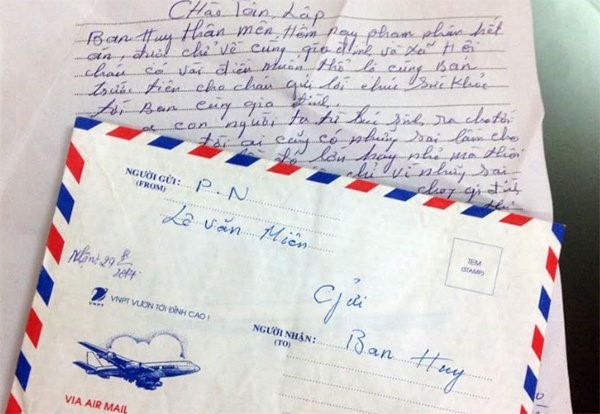 CHào Tân Lập
Ban Huy thân mến Hôm nay phạm phân hết
án, được chở về cùng gia đình và xã Hội
cháu có vài điều muốn thổ lộ cùng Ban
trước tiên cho cháu gửi lời chúc sức khỏe
tới Ban cùng gia đình.
con người ta từ lúc sinh ra cho tới
ai cũng có những sai lầm cho
lớn hay nhỏ mà thôi
chỉ vì những sai
gia đình
NGƯỜI GỬI: P.N
(FROM)
Lê Văn Miên
TEM
(STAMP)
Nhận: 29 8/2014
VNPT VƯƠN TỚI ĐỈNH CAO !
VNPT
Gửi
NGƯỜI NHẬN: Ban Huy
(TO)
VIA AIR MAIL